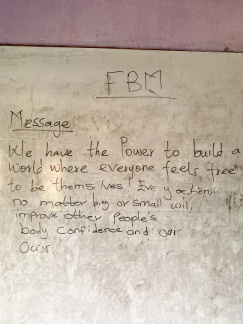 FBM
Message
We have the Power to build a
World where everyone feels free
to be themselves! Every action,
no matter big or small will
improve other People's
body Confidence and our
Own